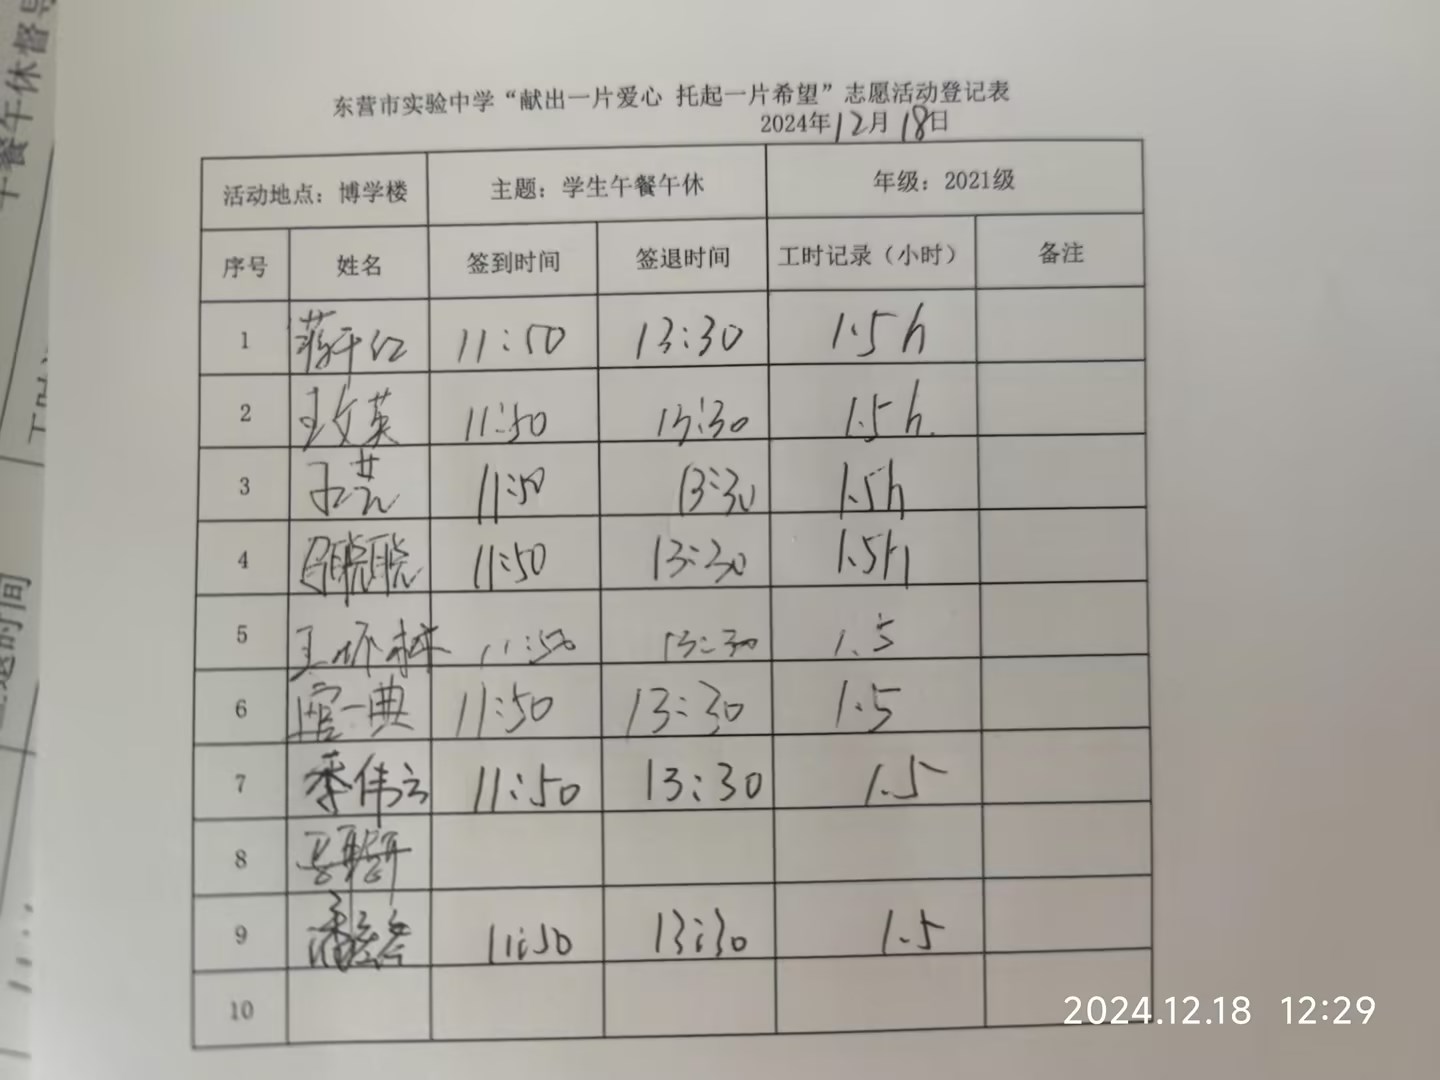 东营市实验中学“献出一片爱心 托起一片希望”志愿活动登记表
2024年12月18日
活动地点：博学楼 主题：学生午餐午休 年级：2021级
序号 姓名 签到时间 签退时间 工时记录（小时） 备注
1 11:50 13:30 1.5h
2 王文英 11:50 13:30 1.5h.
3 11:50 13:30 1.5h
4 11:50 13:30 1.5h
5 11:50 13:30 1.5
6 11:50 13:30 1.5
7 季伟云 11:50 13:30 1.5
8
9 11:50 13:30 1.5
10
2024.12.18 12:29
午餐午休督导
退时间